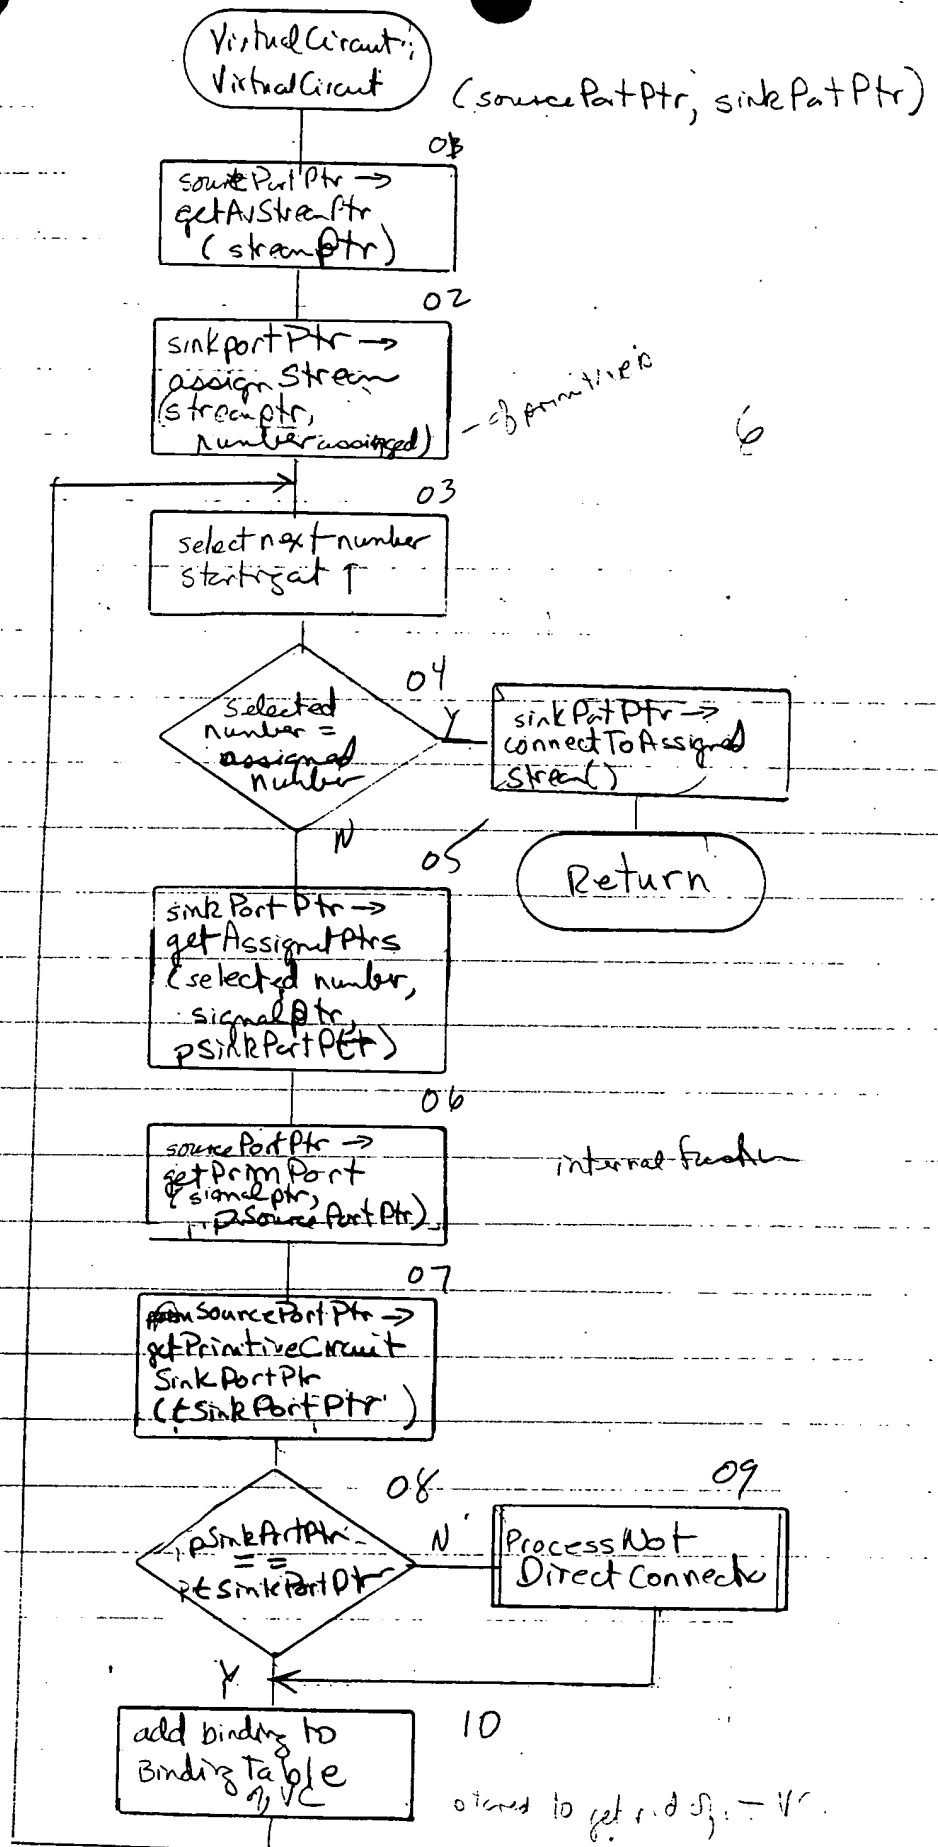 VirtualCircuit::
VirtualCircuit
(sourcePortPtr, sinkPortPtr)
01
sourcePortPtr →
getAvStreamPtr
(streamptr)
02
sinkportPtr →
assignStream
(streamptr,
number assigned)
- of primitives
6
03
select next number
starting at 1
04
selected
number =
assigned
number
Y
sinkPortPtr →
connectToAssigned
Stream()
N
Return
05
sinkPortPtr →
getAssignedPtrs
(selected number,
signalptr,
pSinkPortPtr)
06
sourcePortPtr →
getPrimPort
(signalptr,
pSourcePortPtr)
internal function
07
SourcePortPtr →
getPrimitiveCircuit
SinkPortPtr
(tSinkPortPtr)
08
pSinkPortPtr
==
tSinkPortPtr
N
Y
09
ProcessNot
DirectConnect
10
add binding to
Binding Table
of VC
to get rid of VC